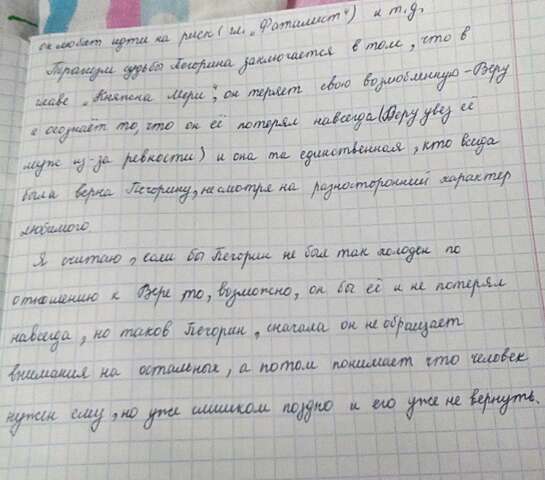 он любит идти на риск (гл. „Фаталист“) и т.д.
Трагизм судьбы Печорина заключается в том, что в
главе „Княжна Мери“, он теряет свою возлюбленную - Веру
и осознаёт то, что он её потерял навсегда (Веру увёз её
муж из-за ревности) и она та единственная, кто всегда
была верна Печорину, несмотря на разносторонний характер
любимого.
Я считаю, если бы Печорин не был так холоден по
отношению к Вере, то, возможно, он бы её и не потерял
навсегда, но таков Печорин, сначала он не обращает
внимания на остальных, а потом понимает что человек
нужен ему, но уже слишком поздно и его уже не вернуть.